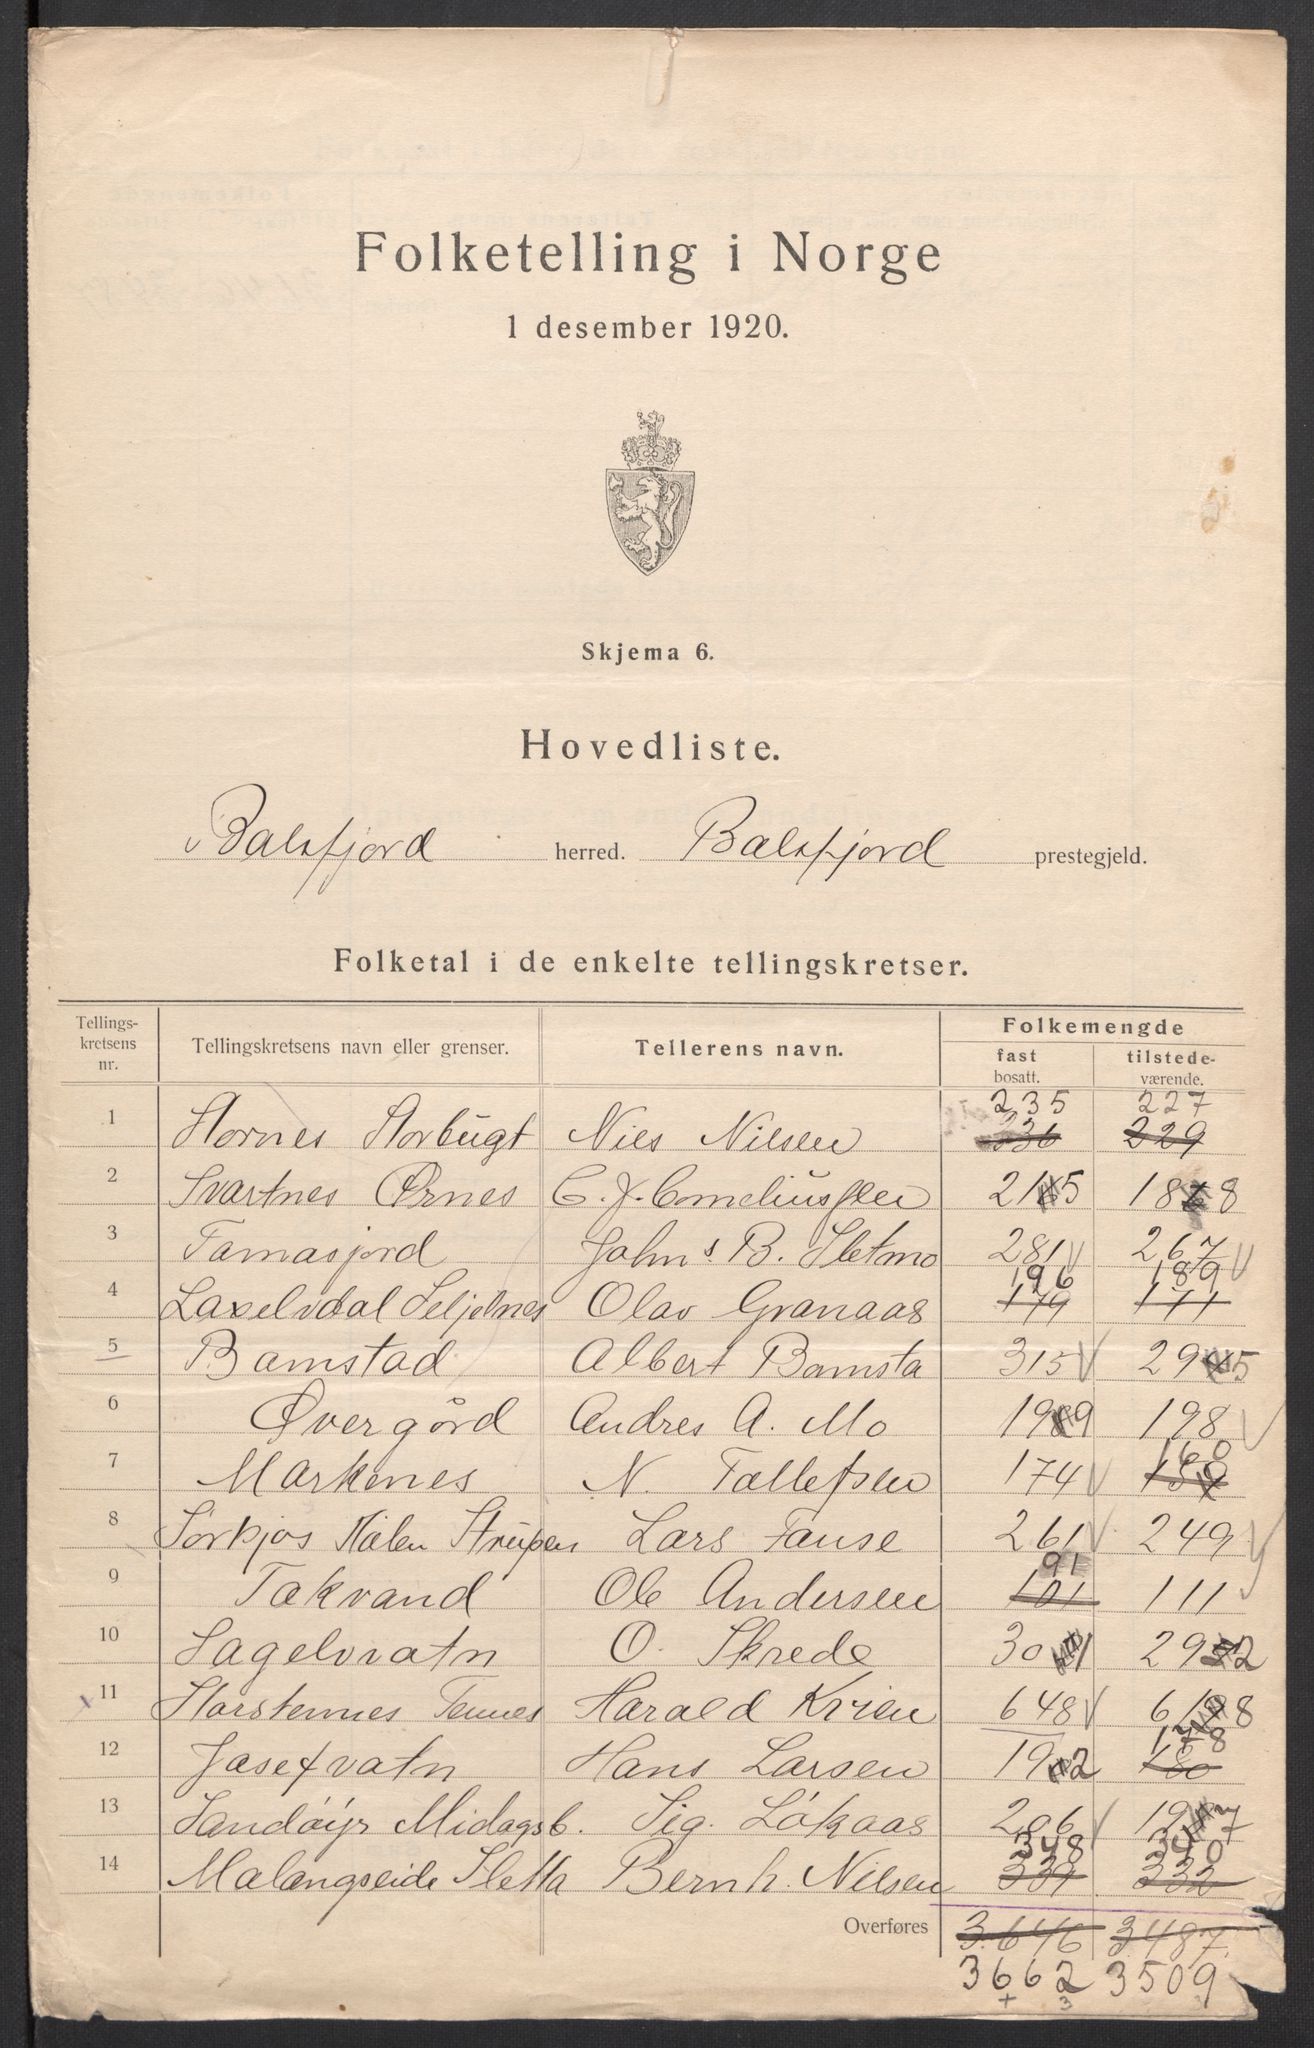 Folketelling i Norge
1 desember 1920.
Skjema 6.
Hovedliste.
Balsfjord herred. Balsfjord prestegjeld.
Folketal i de enkelte tellingskretser.
Tellings-
kretsens
nr.
Tellingskretsens navn eller grenser.
Tellerens navn.
Folkemengde
fast
bosatt.
tilstede-
værende.
235 227
1 Stornes Storbugt Niels Nilsen 336 229
2 Svartnes Ørnes C. J. Corneliussen 215 188
3 Tamasjord Johns. B. Sletmo 281 267
196 189
4 Laxelvdal Seljelnes Olav Granaas 179 171
5 Bomstad Albert Bomsta 315 295
6 Øvergård Andres A. Mo 199 198
160
7 Markenes N. Tollefsen 174
8 Sörkjos Kålen Strupen Lars Fause 261 249
91
9 Takvand Ole Andersen 101 111
10 Sagelvvatn O. Skrede 301 292
11 Storstennes Tennes Harald Kvien 648 618
178
12 Josefvatn Hans Larsen 192 180
13 Sandöyr Midagsb. Sig. Lökaas 206 197
348 340
14 Malangseide Sletta Bernh. Nilsen 339 332
Overføres 3646 3487
3662 3509
+ 3